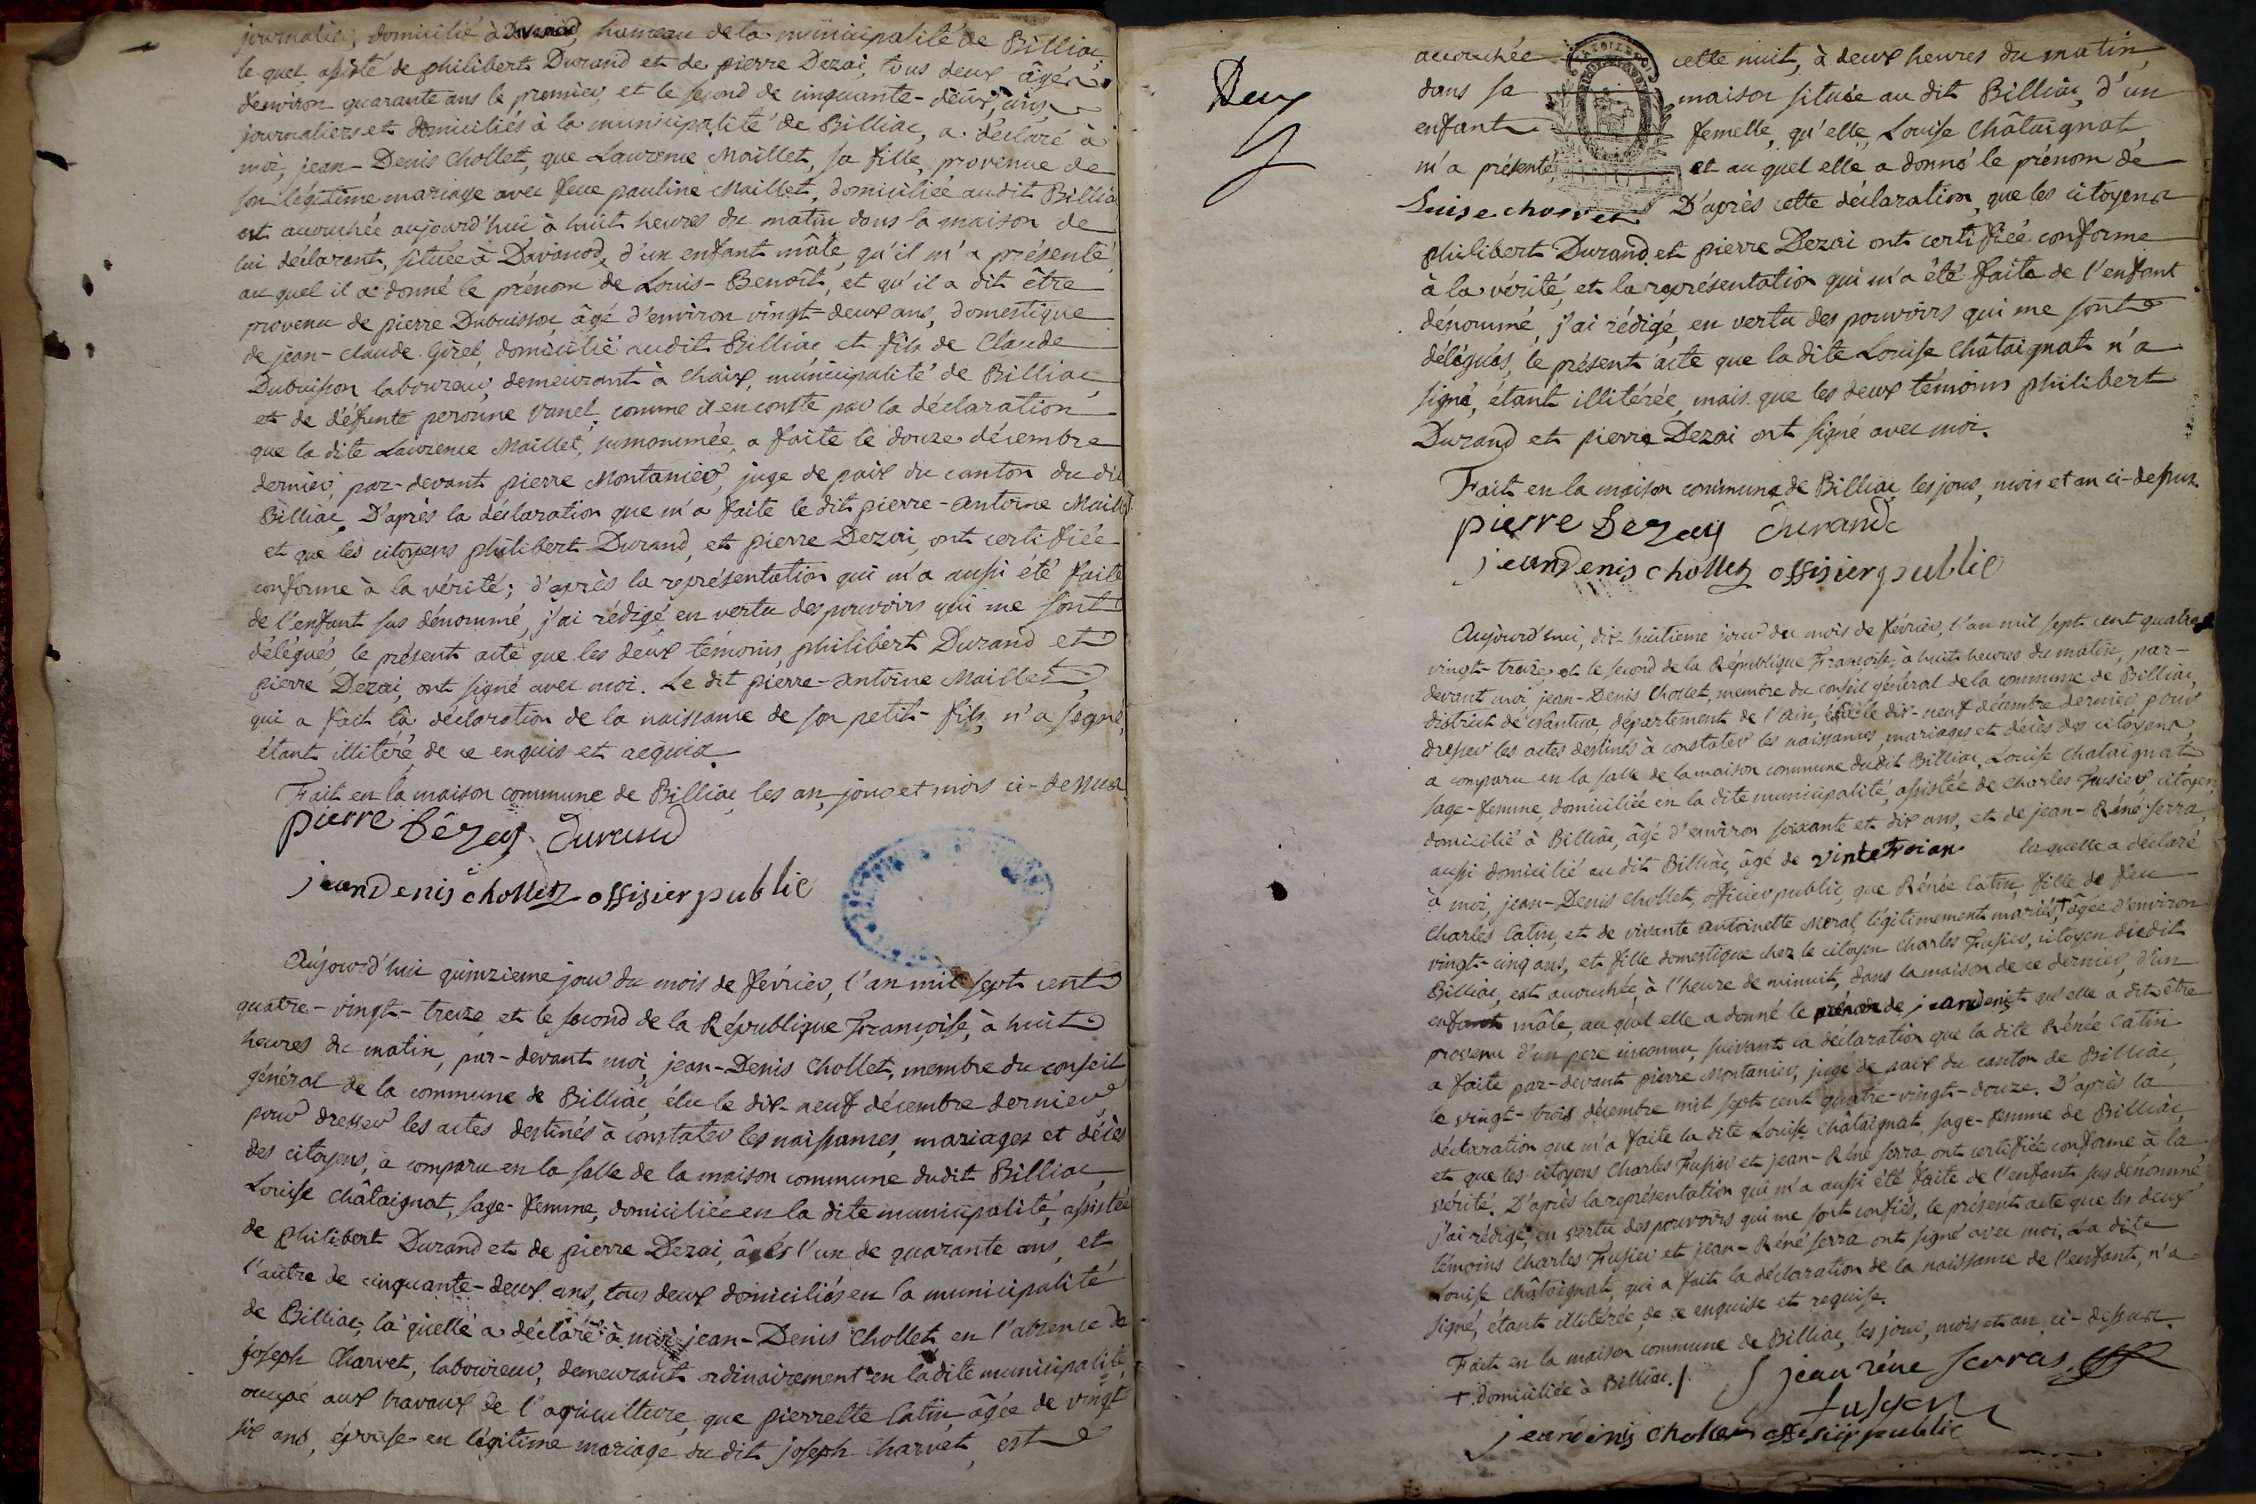 journalier, domicilié à Davanod, hameau de la municipalité de Billiac,
le quel, assisté de philibert Durand et de pierre Dezai, tous deux âgés
d'environ quarante ans le premier, et le second de cinquante-deux ans,
journaliers et domiciliés à la municipalité de Billiac, a déclaré à
moi, jean-Denis Chollet, que Laurence Maillet, sa fille, provenue de
son légitime mariage avec feue pauline Maillet, domiciliée audit Billiac
est accouchée aujourd'hui à huit heures du matin dans la maison de
lui déclarant, située à Davanod, d'un enfant mâle, qu'il m'a présenté,
au quel il a donné le prénom de Louis-Benoît, et qu'il a dit être
provenu de pierre Dubuisson, âgé d'environ vingt-deux ans, domestique
de jean-claude Girel, domicilié audit Billiac et fils de Claude
Dubuisson laboureur, demeurant à Chaix, municipalité de Billiac,
et de défunte peronne Vanel, comme il en conste par la déclaration
que la dite Laurence Maillet, susnommée, a faite le douze décembre
dernier, par-devant pierre Montanier, juge de paix du canton du dit
Billiac. D'après la déclaration que m'a faite le dit pierre-antoine Maillet
et que les citoyens philibert Durand, et pierre Dezai, ont certifiée
conforme à la vérité; d'après la représentation qui m'a aussi été faite
de l'enfant sus dénommé, j'ai rédigé en vertu des pouvoirs qui me sont
délégués le présent acte que les deux témoins, philibert Durand et
pierre Dezai, ont signé avec moi. Le dit pierre-antoine Maillet,
qui a fait la déclaration de la naissance de son petit-fils, n'a signé,
étant illitéré, de ce enquis et acquis.
Fait en la maison commune de Billiac, les an, jour et mois ci-dessus.
pierre Dézay Durand
jean denis chollet offisier public
Aujourd'hui quinzieme jour du mois de février, l'an mil sept cent
quatre-vingt-treize, et le second de la République françoise, à huit
heures du matin, par-devant moi, jean-Denis Chollet, membre du conseil
général de la commune de Billiac, élu le dix-neuf décembre dernier
pour dresser les actes destinés à constater les naissances, mariages et décès
des citoyens, a comparu en la salle de la maison commune dudit Billiac,
Louise Châtaignat, sage-femme, domiciliée en la dite municipalité, assistée
de philibert Durand et de pierre Dezai, âgés l'un de quarante ans, et
l'autre de cinquante-deux ans, tous deux domiciliés en la municipalité
de Billiac, la quelle a déclaré à moi jean-Denis Chollet, en l'absence de
joseph Charvet, laboureur, demeurant ordinairement en la dite municipalité,
occupé aux travaux de l'agriculture, que pierrette Catin, âgée de vingt
six ans, épouse en légitime mariage du dit joseph Charvet, est
Deux
accouchée cette nuit, à deux heures du matin,
dans sa maison située au dit Billiac, d'un
enfant femelle, qu'elle, Louise Châtaignat,
m'a présenté, et au quel elle a donné le prénom de
Luise charvet. D'après cette déclaration, que les citoyens
philibert Durand et pierre Dezai ont certifiée conforme
à la vérité, et la représentation qui m'a été faite de l'enfant
dénommé, j'ai rédigé, en vertu des pouvoirs qui me sont
délégués, le présent acte que la dite Louise Châtaignat n'a
signé, étant illitérée, mais que les deux témoins philibert
Durand et pierre Dezai ont signé avec moi.
Fait en la maison commune de Billiac les jour, mois et an ci-dessus.
pierre Dezay Durand
jean Denis chollet offisier public
Aujourd'hui, dix-huitieme jour du mois de février, l'an mil sept cent quatre
vingt-treize, et le second de la République françoise, à huit heures du matin, par-
devant moi, jean-Denis Chollet, membre du conseil général de la commune de Billiac,
district de Nantua, département de l'Ain, élu le dix-neuf décembre dernier pour
dresser les actes destinés à constater les naissances, mariages et décès des citoyens,
a comparu en la salle de la maison commune dudit Billiac, Louise Chataignat
sage-femme, domiciliée en la dite municipalité, assistée de Charles Fusier citoyen
domicilié à Billiac, âgé d'environ soixante et dix ans, et de jean-Réné Serra,
aussi domicilié au dit Billiac, âgé de vinte troi an la quelle a déclaré
à moi, jean-Denis Chollet, officier public, que Rénée Catin, fille de feu
Charles Catin, et de vivante antoinette Meral, légitimement mariés, + âgée d'environ
vingt-cinq ans, et fille domestique chez le citoyen Charles Fusier, citoyen dudit
Billiac, est accouchée, à l'heure de minuit, dans la maison de ce dernier, d'un
enfant mâle, au quel elle a donné le prénom de jean denis et qu'elle a dit être
provenu d'un pere inconnu, suivant la déclaration que la dite Rénée Catin
a faite par-devant pierre Montanier, juge de paix du canton de Billiac,
le vingt-trois décembre mil sept cent quatre-vingt-douze. D'après la
déclaration que m'a faite la dite Louise Châtaignat, sage-femme de Billiac,
et que les citoyens Charles Fusier et jean-Réné Serra, ont certifiée conforme à la
vérité. D'après la représentation qui m'a aussi été faite de l'enfant sus dénommé,
j'ai rédigé, en vertu des pouvoirs qui me sont confiés, le présent acte que les deux
témoins Charles Fusier et jean-Réné Serra ont signé avec moi. La dite
Louise Châtaignat, qui a fait la déclaration de la naissance de l'enfant, n'a
signé, étant illitérée, de ce enquise et requise.
Fait en la maison commune de Billiac, les jour, mois et an, ci-dessus.
+ domiciliée à Billiac./. jean réne serras
fusyer
jean denis chollet offisier public